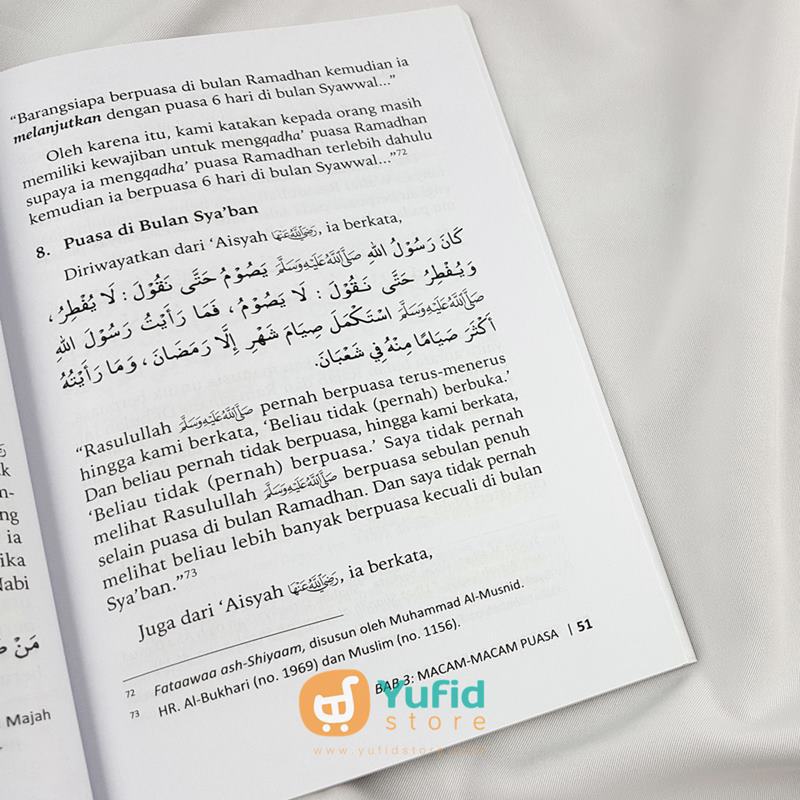 “Barangsiapa berpuasa di bulan Ramadhan kemudian ia
melanjutkan dengan puasa 6 hari di bulan Syawwal...”
Oleh karena itu, kami katakan kepada orang masih
memiliki kewajiban untuk mengqadha’ puasa Ramadhan
supaya ia mengqadha’ puasa Ramadhan terlebih dahulu
kemudian ia berpuasa 6 hari di bulan Syawwal...”72
8. Puasa di Bulan Sya’ban
Diriwayatkan dari ‘Aisyah رَضِيَ اللَّهُ عَنْهَا, ia berkata,
كَانَ رَسُوْلُ اللهِ صَلَّى اللَّهُ عَلَيْهِ وَسَلَّمَ يَصُوْمُ حَتَّى نَقُوْلَ : لَا يُفْطِرُ ،
وَيُفْطِرُ حَتَّى نَقُوْلَ : لَا يَصُوْمُ ، فَمَا رَأَيْتُ رَسُوْلَ اللهِ
صَلَّى اللَّهُ عَلَيْهِ وَسَلَّمَ اسْتَكْمَلَ صِيَامَ شَهْرٍ إِلَّا رَمَضَانَ ، وَمَا رَأَيْتُهُ
أَكْثَرَ صِيَامًا مِنْهُ فِي شَعْبَانَ.
“Rasulullah صَلَّى اللَّهُ عَلَيْهِ وَسَلَّمَ pernah berpuasa terus-menerus
hingga kami berkata, ‘Beliau tidak (pernah) berbuka.’
Dan beliau pernah tidak berpuasa, hingga kami berkata,
‘Beliau tidak (pernah) berpuasa.’ Saya tidak pernah
melihat Rasulullah صَلَّى اللَّهُ عَلَيْهِ وَسَلَّمَ berpuasa sebulan penuh
selain puasa di bulan Ramadhan. Dan saya tidak pernah
melihat beliau lebih banyak berpuasa kecuali di bulan
Sya’ban.”73
Juga dari ‘Aisyah رَضِيَ اللَّهُ عَنْهَا, ia berkata,
72 Fataawaa ash-Shiyaam, disusun oleh Muhammad Al-Musnid.
73 HR. Al-Bukhari (no. 1969) dan Muslim (no. 1156).
BAB 3: MACAM-MACAM PUASA | 51
ng
ia
ika
Nabi
مَنْ
Majah
Yufid
store
www.yufidstore.com